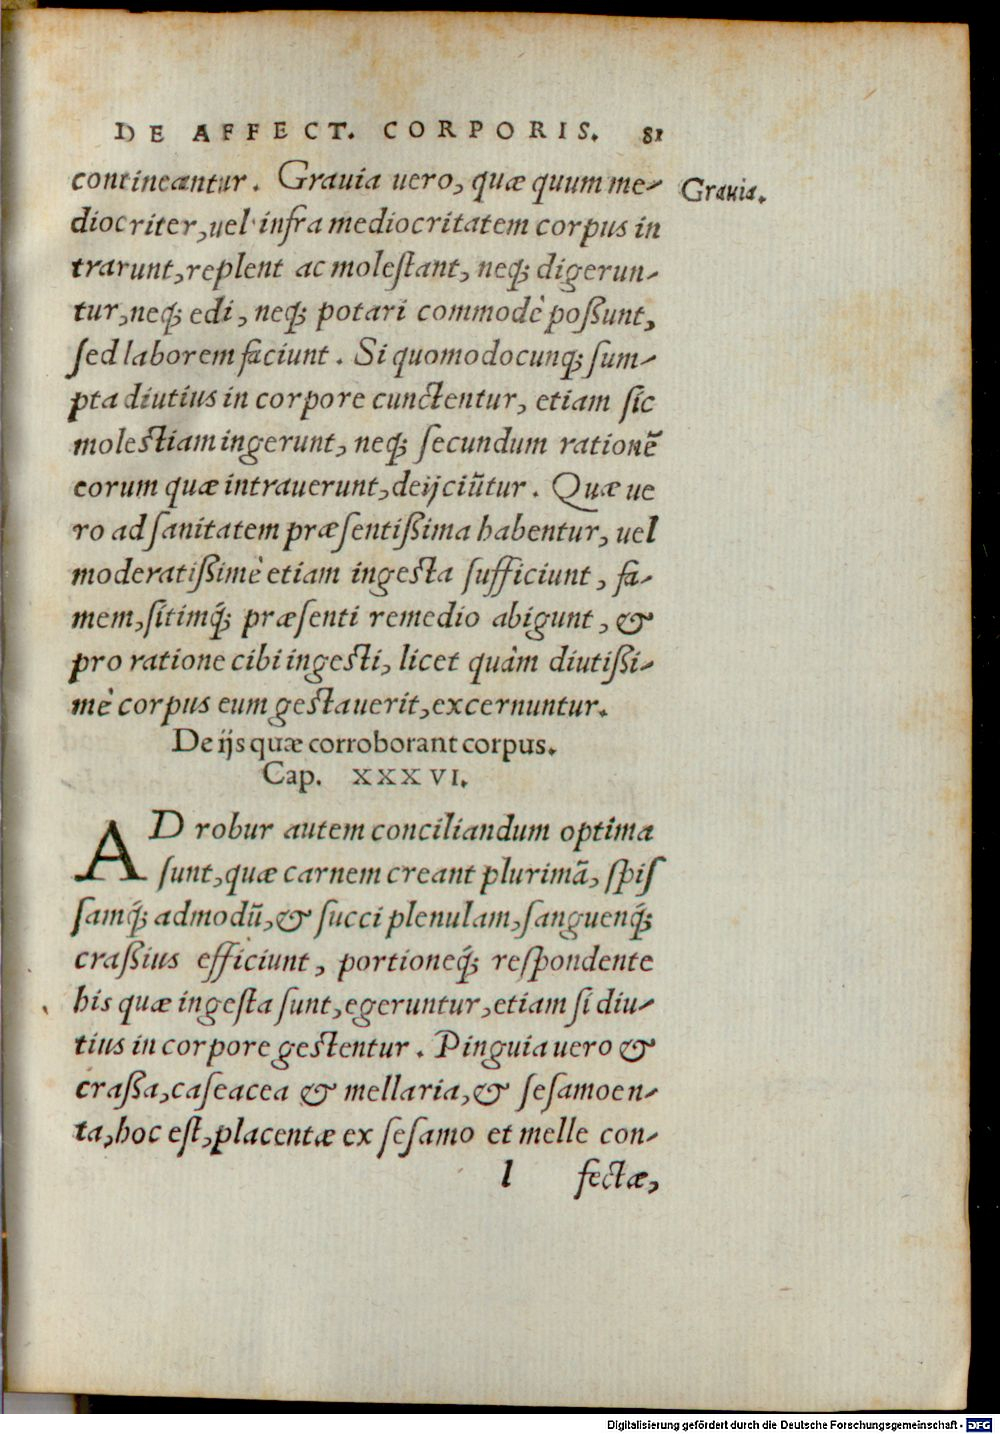 DE AFFECT. CORPORIS. 81
contineantur. Grauia uero, quæ quum me-
Grauia.
diocriter, uel infra mediocritatem corpus in
trarunt, replent ac molestant, neq; digerun-
tur, neq; edi, neq; potari commodè poßunt,
sed laborem faciunt. Si quomodocunq; sum-
pta diutius in corpore cunctentur, etiam sic
molestiam ingerunt, neq; secundum rationẽ
eorum quæ intrauerunt, deijciũtur. Quæ ue
ro ad sanitatem præsentißima habentur, uel
moderatißimè etiam ingesta sufficiunt, fa-
mem, sitimq́; præsenti remedio abigunt, &
pro ratione cibi ingesti, licet quàm diutißi-
mè corpus eum gestauerit, excernuntur.
De ijs quæ corroborant corpus.
Cap. XXXVI.
AD robur autem conciliandum optima
sunt, quæ carnem creant plurimã, spis
samq́; admodũ, & succi plenulam, sanguenq́;
craßius efficiunt, portioneq́; respondente
his quæ ingesta sunt, egeruntur, etiam si diu-
tius in corpore gestentur. Pinguia uero &
craßa, caseacea & mellaria, & sesamoen-
ta, hoc est, placentæ ex sesamo et melle con-
l fectæ,
Digitalisierung gefördert durch die Deutsche Forschungsgemeinschaft - DFG